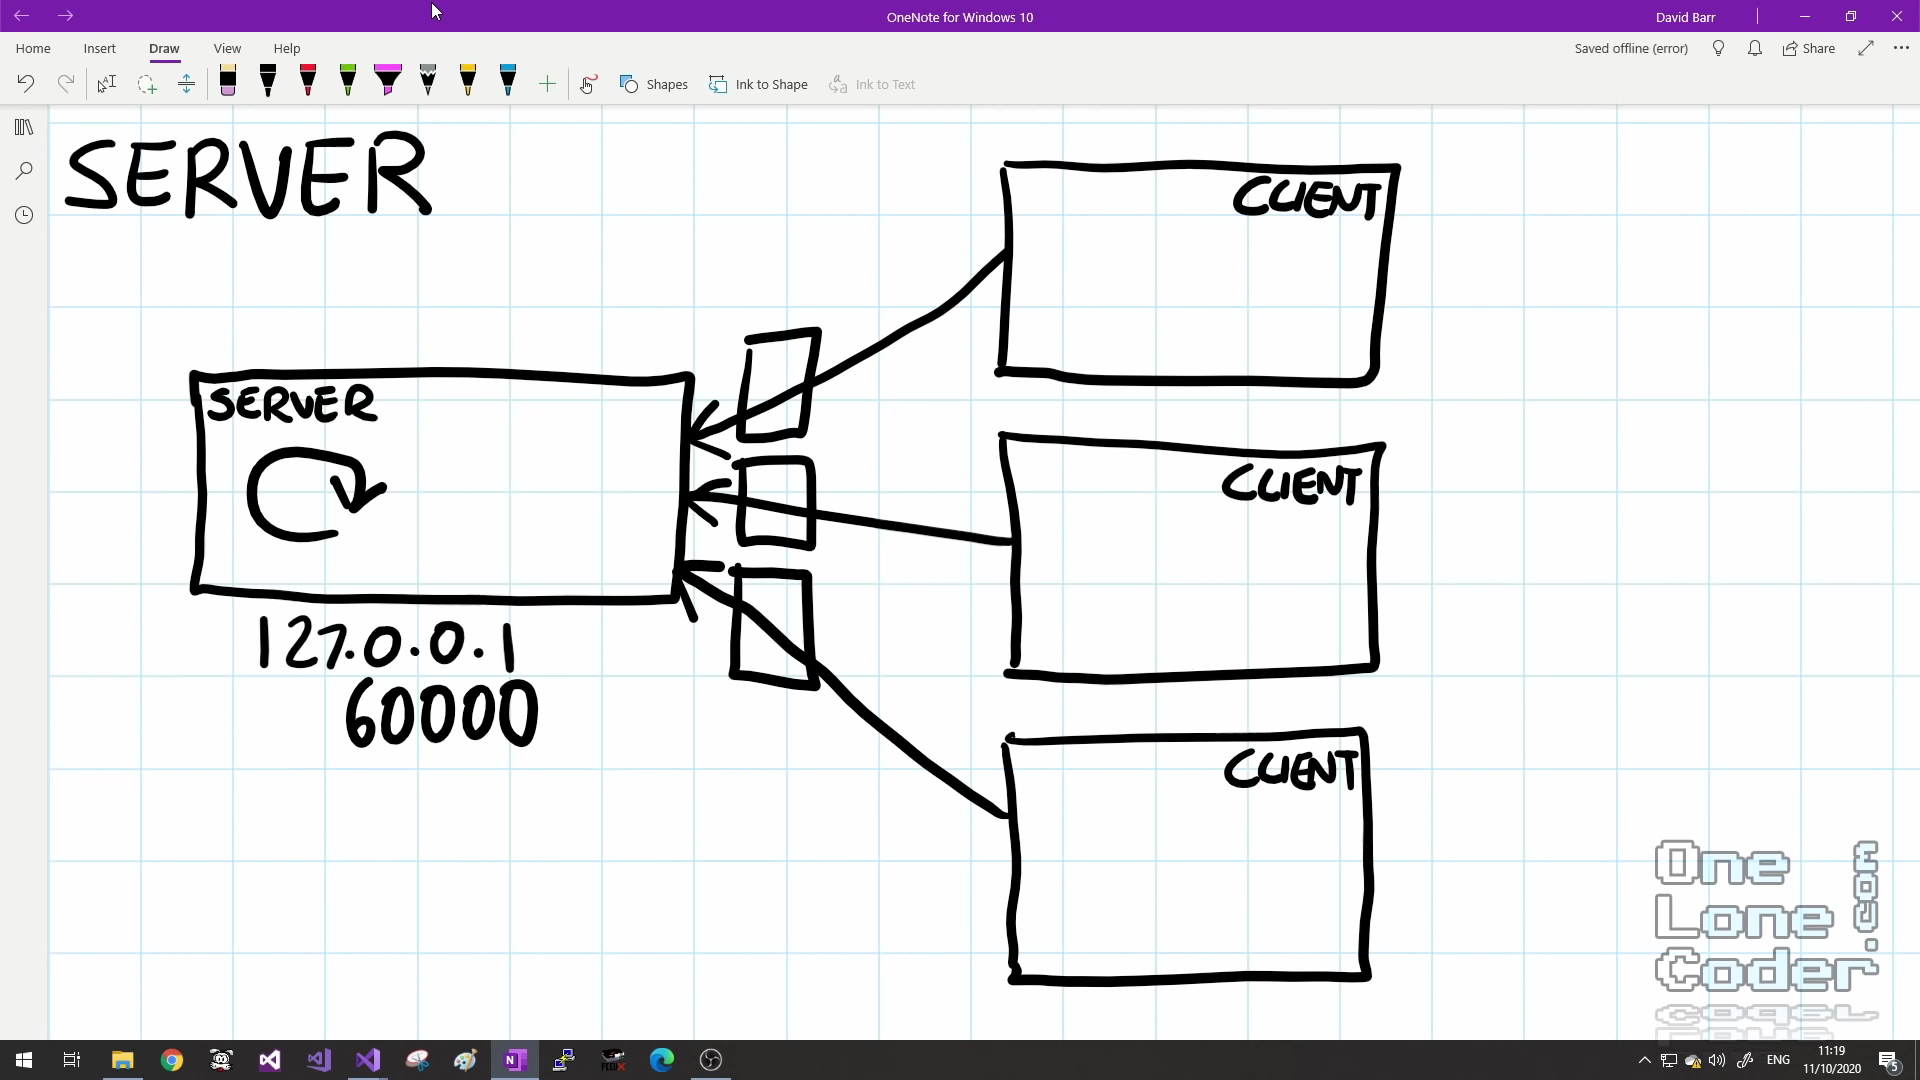 OneNote for Windows 10
David Barr
Home Insert Draw View Help
Saved offline (error)
Share
Shapes
Ink to Shape
Ink to Text
SERVER
SERVER
127.0.0.1
60000
CLIENT
CLIENT
CLIENT
One
Lone
Coder
.com
ENG
11:19
11/10/2020
5